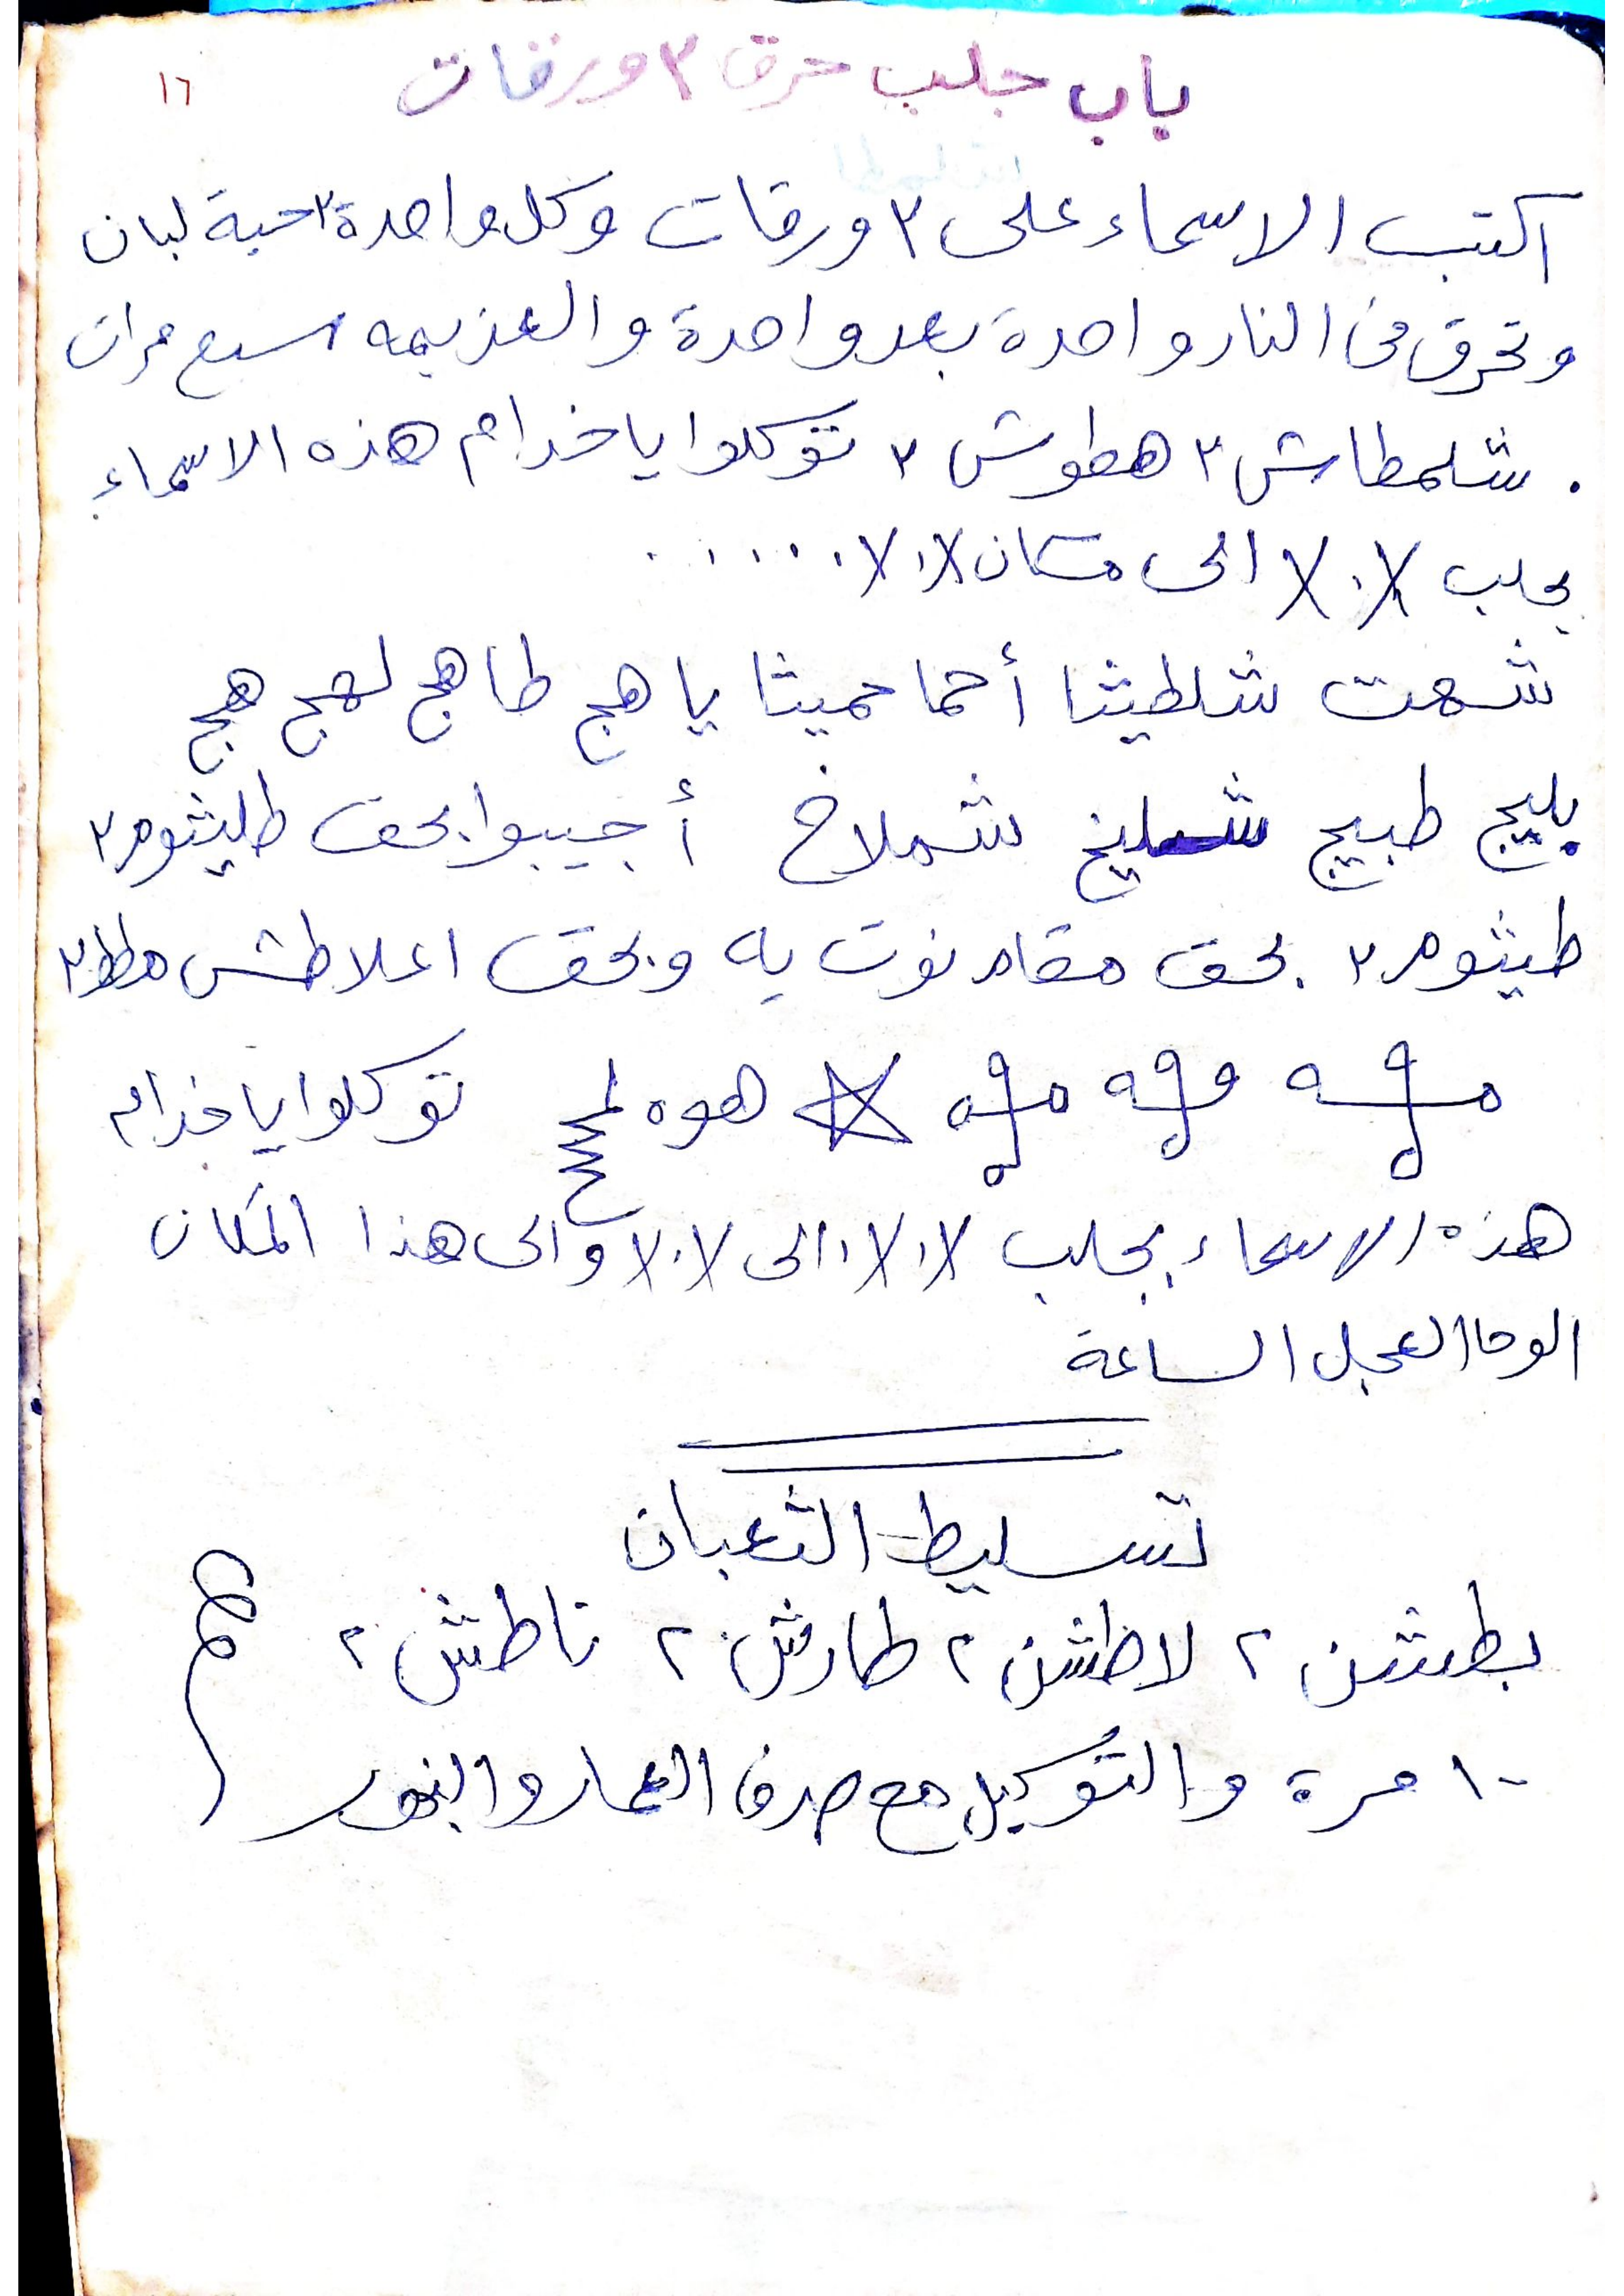 ١٦
باب جلب حرق ٣ ورقات
اكتب الاسماء على ٣ ورقات وكل واحدة ٣ حبة لبان
وتحرق فى النار واحدة بعد واحدة والعزيمه سبع مرات
شلمطاش ٢ هطوش ٢ توكلوا يا خدام هذه الاسماء
بجلب الى مكان ......
شهت شلطيثا أحما حميثا يا هج طاهج لهج هج
بليج طبيج شمليخ شملاخ أجيبوا بحق طليثوم ٢
طيثوم ٢ بحق مقام نوت يه وبحق اعلاطش مطط ٣
هوه توكلوا يا خدام
هذه الاسماء بجلب الى والى هذا المكان
الوحا العجل الساعة
تسليط الثعبان
بطشن ٢ لاطشن ٢ طارش ٢ ناطش ٢
١٠ مرة والتوكيل مع صرف العمار والبخور